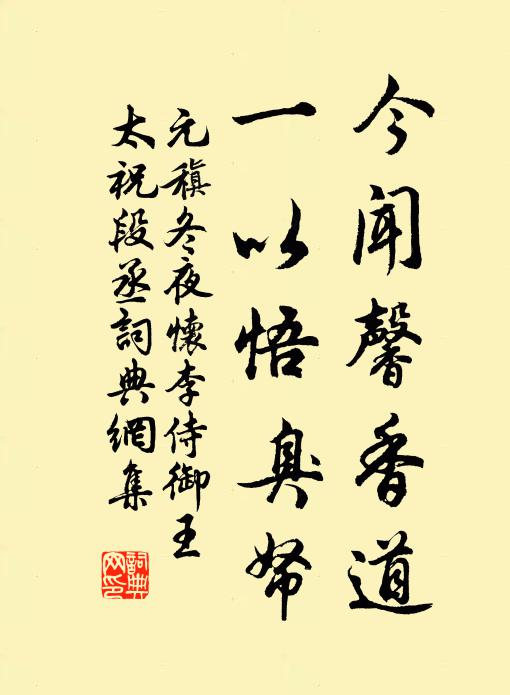 今聞馨香道
一以悟臭帤
元稹冬夜懷李侍御王
太祝段丞詞典網集
詞典
网印